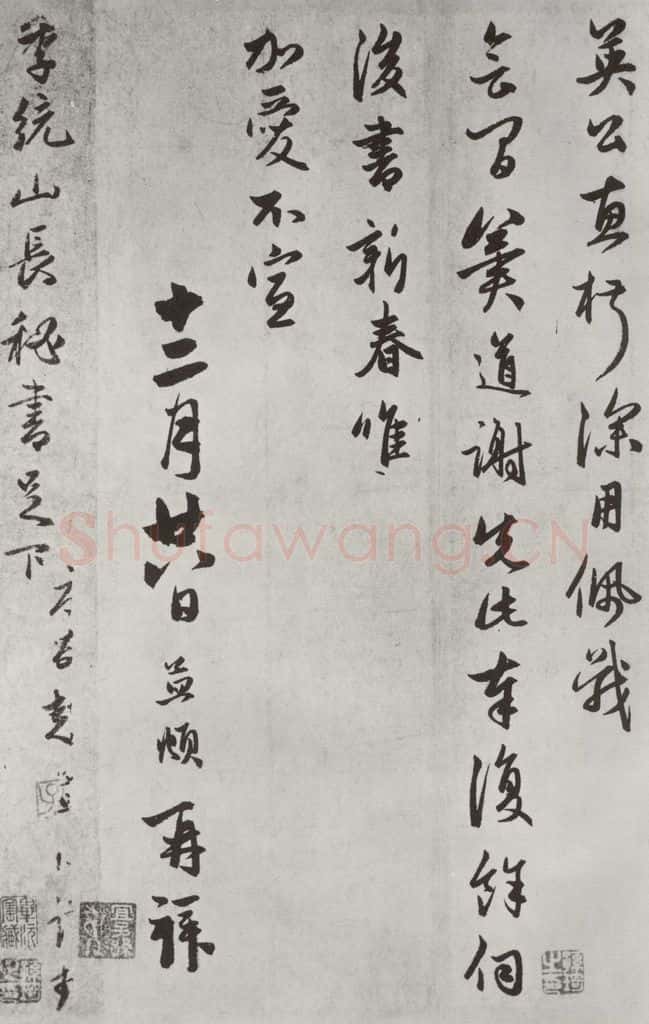 英公直深用佩戢
會間冀道謝先此奉復餘伺
後書新春唯
加愛不宣
十二月廿八日頓再拜
季統山長秘書足下
Shufawang.CN